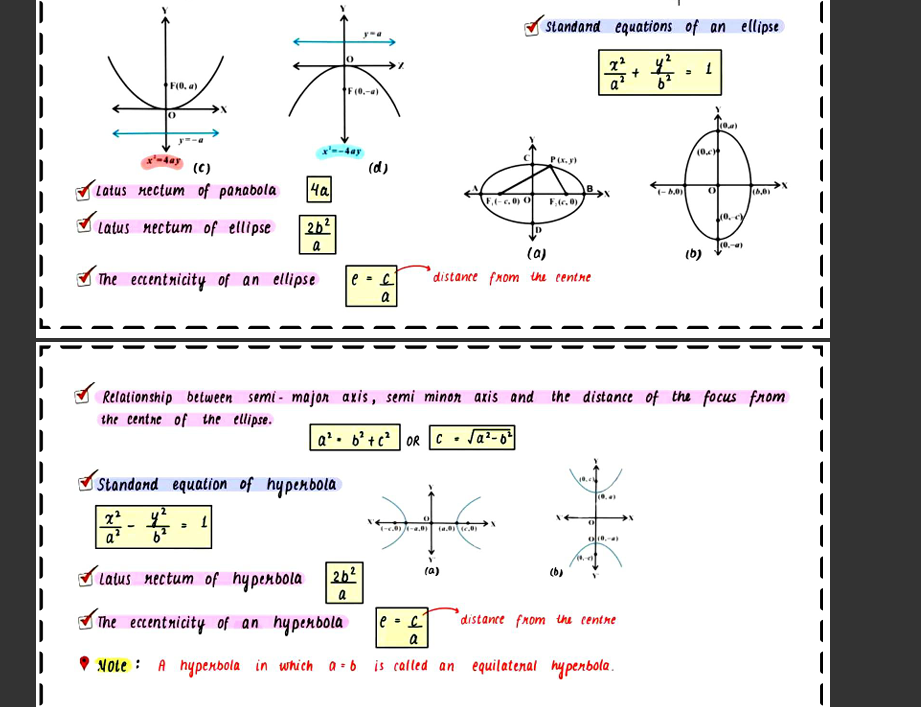 Y
F(0, a)
O
X
y=−a
x²=4ay
(c)
Y
y=a
O
X
F(0,−a)
x²=−4ay
(d)
Latus rectum of parabola 4a
Latus rectum of ellipse 2b²/a
The eccentricity of an ellipse e = c/a distance from the centre
Standard equations of an ellipse
x²/a² + y²/b² = 1
Y
C
P(x, y)
A
B
X
F₁(−c, 0) O F₂(c, 0)
D
(a)
Y
(0,a)
(0,c)
(−b,0) O (b,0) X
(0,−c)
(0,−a)
(b)
Relationship between semi-major axis, semi minor axis and the distance of the focus from
the centre of the ellipse.
a² = b²+c² OR c = √a²−b²
Standard equation of hyperbola
x²/a² − y²/b² = 1
Y
X' O X
(−c,0) (−a,0) (a,0) (c,0)
Y'
(a)
Y
(0,c)
(0,a)
X' O X
(0,−a)
(0,−c)
Y'
(b)
Latus rectum of hyperbola 2b²/a
The eccentricity of an hyperbola e = c/a distance from the centre
Note: A hyperbola in which a=b is called an equilateral hyperbola.